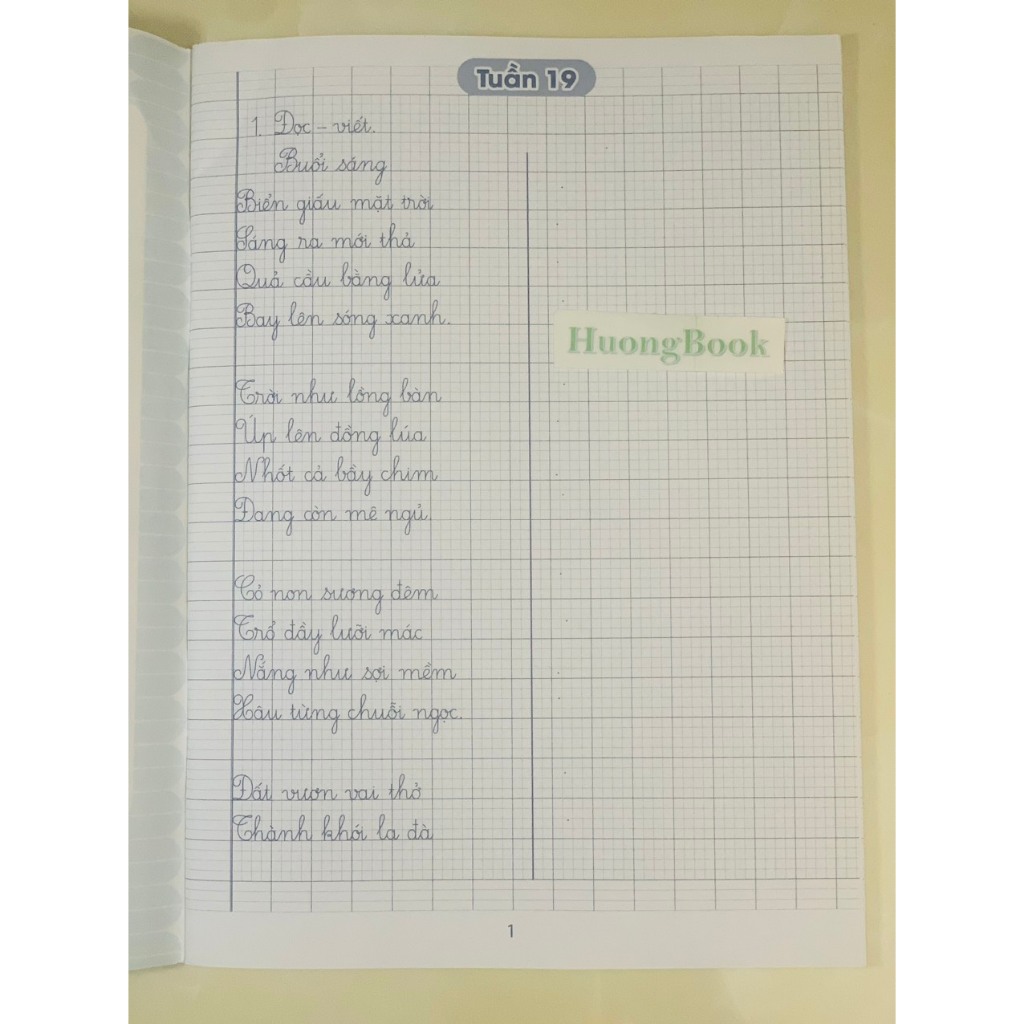 Tuần 19
1. Đọc – viết.
Buổi sáng
Biển giấu mặt trời
Sáng ra mới thả
Quả cầu bằng lửa
Bay lên sóng xanh.
HuongBook
Trời như lồng bàn
Úp lên đồng lúa
Nhốt cả bầy chim
Đang còn mê ngủ.
Cỏ non sương đêm
Trổ đầy lưỡi mác
Nắng như sợi mềm
Xâu từng chuỗi ngọc.
Đất vươn vai thở
Thành khói la đà
1